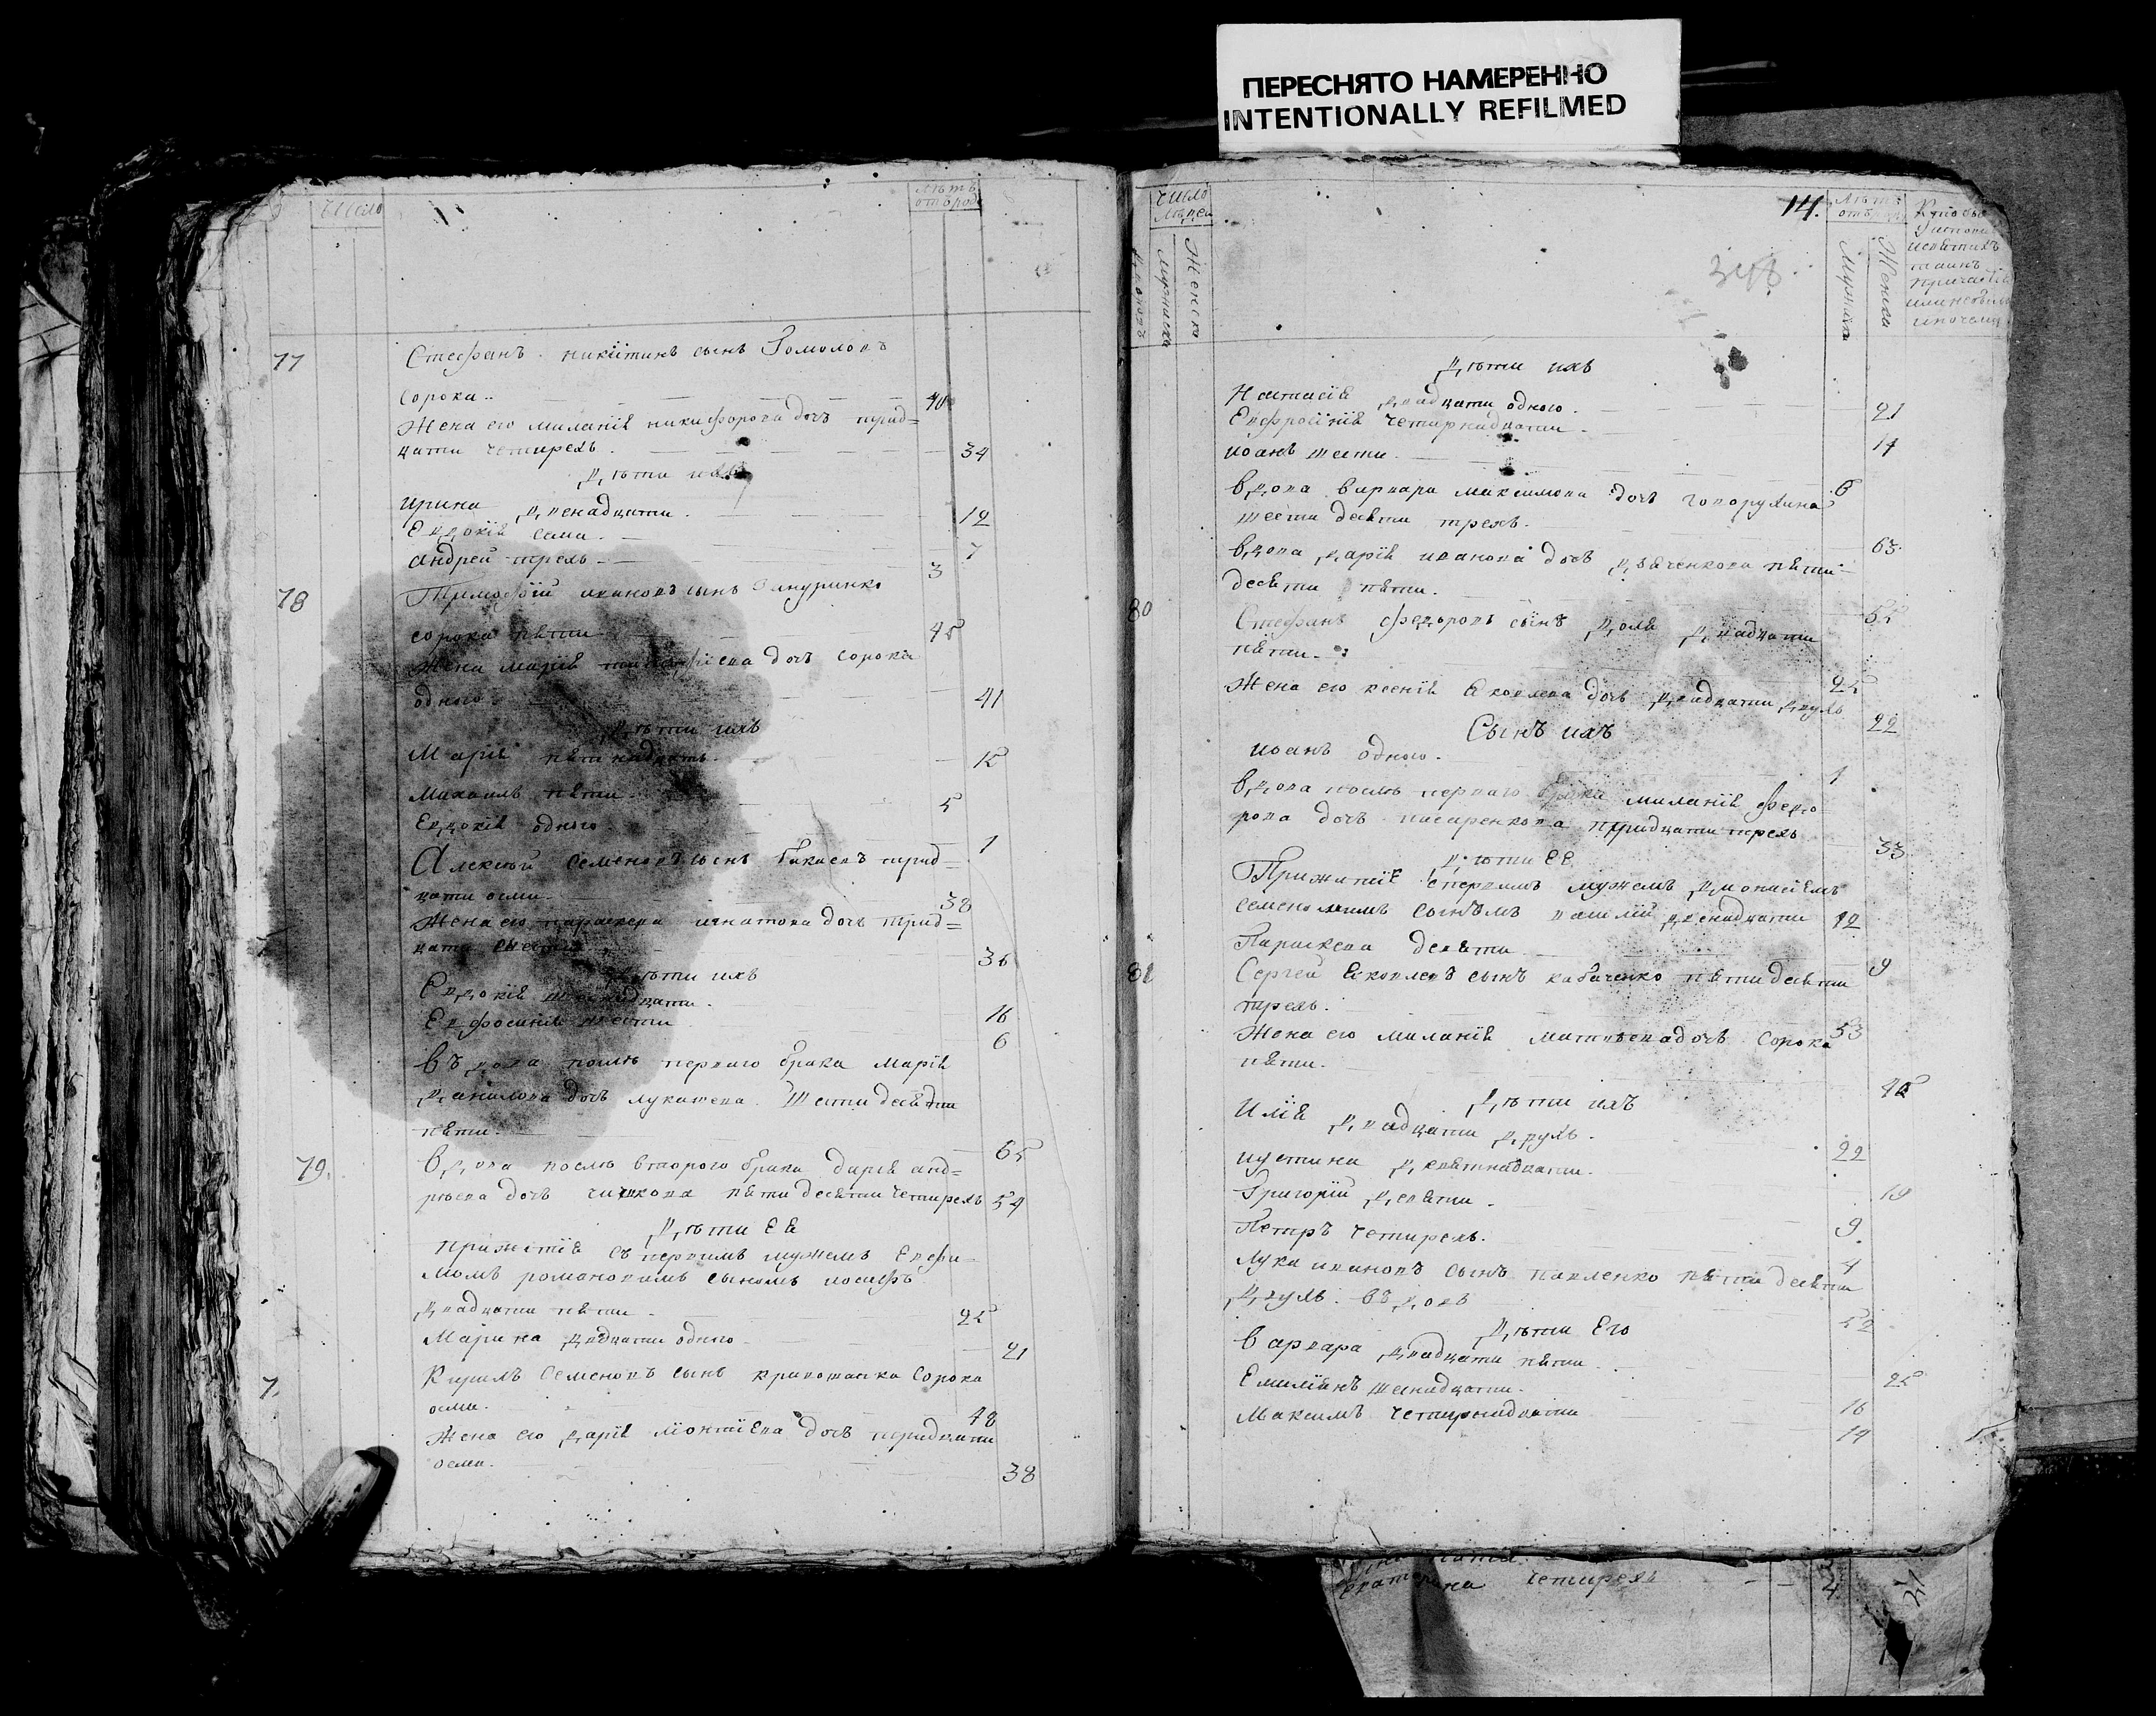 ПЕРЕСНЯТО НАМЕРЕННО
INTENTIONALLY REFILMED
Число
Лѣтъ
отъ роду
77
Стефанъ никитинъ сынъ Гомолов
сорока
40
Жена его миланія никифорова дочь трид=
цати четирехъ
34
Дѣти ихъ
ирина двенадцати
12
Евдокія семи
7
андрей трехъ
3
78
Тимофій ивановъ сынъ
сорока пяти
45
Жена марія дочь сорока
одного
41
Дѣти ихъ
Марія пятнадцать
15
Михаилъ пяти
5
Евдокія одного
1
Алексѣй Семеновъ сынъ трид=
цати осми
38
Жена его параскева игнатова дочь трид=
цати шести
36
Дѣти ихъ
Евдокія шеснадцати
16
Евфосинія шести
6
въдова послѣ перваго брака Марія
Данилова дочь лукашева Шестидесяти
пяти
65
79.
Вдова послѣ второго брака дарія анд=
рѣева дочь пятидесяти четирехъ
54
Дѣти Ея
прижитія съ первимъ мужемъ Евфи
момъ романовимъ сыномъ иосифъ
двадцати пяти
25
Марина двадцати одного
21
7.
Кирилъ Семеновъ сынъ кривошапка Сорока
осми
48
Жена его дарія дочь тридцати
осми
38
Число
людей
Дворовъ
Мужиска
Женска
14.
Лѣтъ
отъ роду
Мужиска
Женска
Дѣти ихъ
Настасія двадцати одного
21
Евфросинія четирнадцати
14
иоанъ шести
6
Вдова варвара максимова дочь говорухина
шестидесяти трехъ
63
Вдова дарія иванова дочь Дяченкова пяти
десяти пяти
55
80
Стефанъ федоровъ сынъ двадцати
пяти
25
Жена его ксенія Яковлева дочь двадцати двухъ
22
Сынъ ихъ
иоанъ одного
1
Вдова послѣ перваго брака миланія федо
рова дочь писаренкова тридцати трехъ
33
Дѣти ЕЯ
Прижитіе сперьвимъ мужемъ Дионисіемъ
семеновимъ сыномъ василій двенадцати
12
Параскева девяти
9
81
Сергей Яковлевъ сынъ кабаченко пятидесяти
трехъ
53
Жена его миланія матвѣева дочь Сорока
пяти
45
Дѣти ихъ
Илія двадцати двухъ
22
иустина девятнадцати
19
Григорій девяти
9
Петръ четирехъ
4
Лука ивановъ сынъ павленко пяти десяти
двухъ вдовъ
52
Дѣти Его
Варвара двадцати пяти
25
Емиліянъ шеснадцати
16
Максимъ четирнадцати
14
Екатерина четирехъ
4